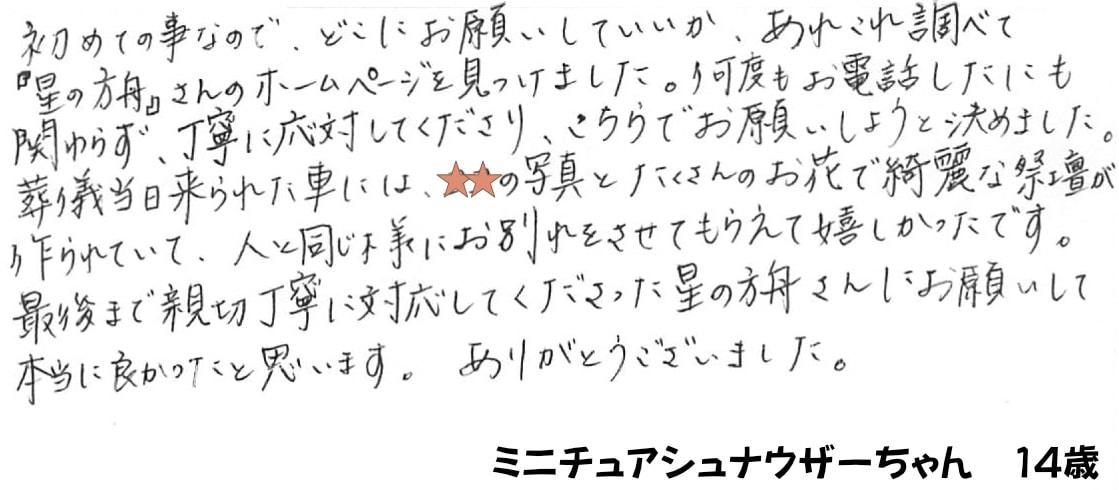 初めての事なので、どこにお願いしていいか、あれこれ調べて
『星の方舟』さんのホームページを見つけました。何度もお電話したにも
関わらず、丁寧に応対してくださり、こちらでお願いしようと決めました。
葬儀当日来られた車には、★★の写真とたくさんのお花で綺麗な祭壇が
作られていて、人と同じ様にお別れをさせてもらえて嬉しかったです。
最後まで親切丁寧に対応してくださった星の方舟さんにお願いして
本当に良かったと思います。 ありがとうございました。
ミニチュアシュナウザーちゃん 14歳